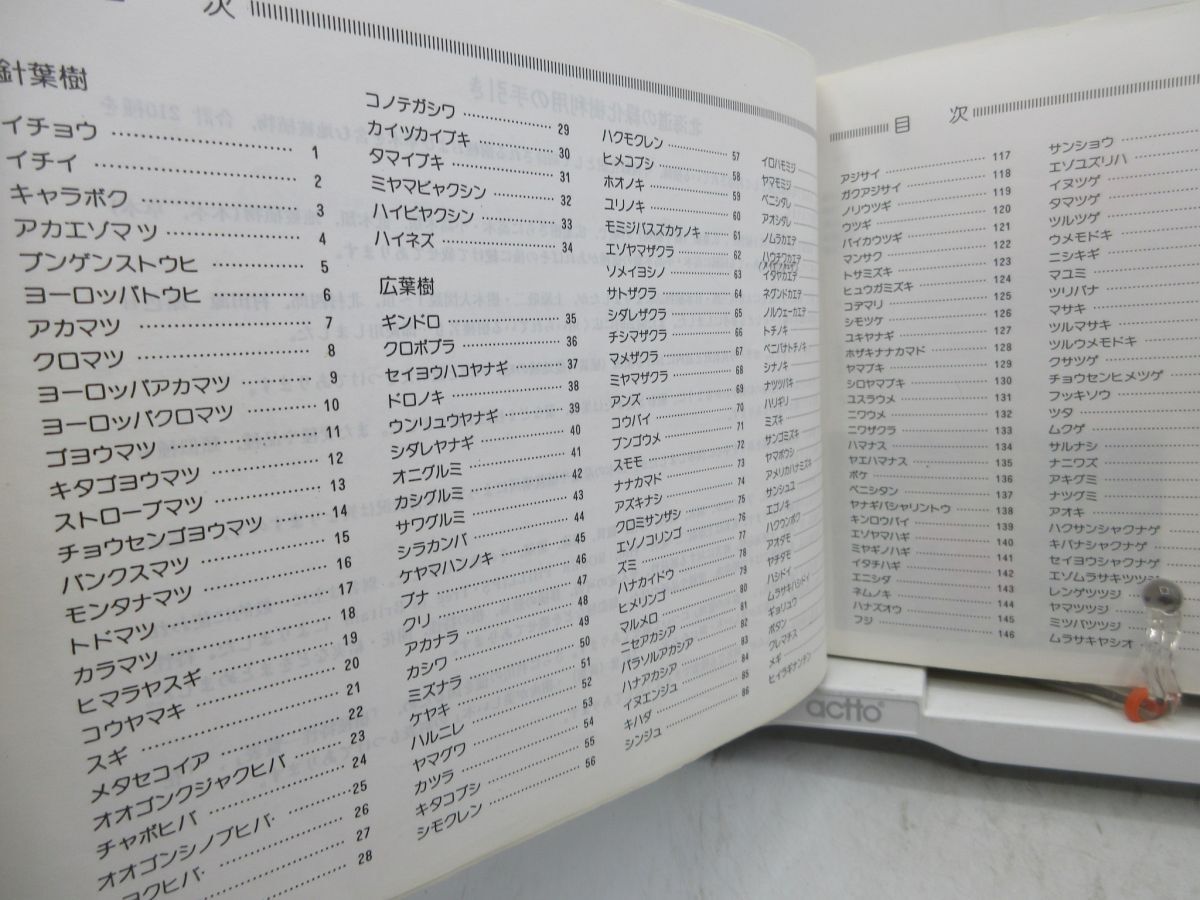 目 次
針葉樹
イチョウ 1
イチイ 2
キャラボク 3
アカエゾマツ 4
プンゲンストウヒ 5
ヨーロッパトウヒ 6
アカマツ 7
クロマツ 8
ヨーロッパアカマツ 9
ヨーロッパクロマツ 10
ゴヨウマツ 11
キタゴヨウマツ 12
ストローブマツ 13
チョウセンゴヨウマツ 14
バンクスマツ 15
モンタナマツ 16
トドマツ 17
カラマツ 18
ヒマラヤスギ 19
コウヤマキ 20
スギ 21
メタセコイア 22
オオゴンクジャクヒバ 23
チャボヒバ 24
オオゴンシノブヒバ 25
ヨクヒバ 26
27
28
コノテガシワ 29
カイヅカイブキ 30
タマイブキ 31
ミヤマビャクシン 32
ハイビャクシン 33
ハイネズ 34
広葉樹
ギンドロ 35
クロポプラ 36
セイヨウハコヤナギ 37
ドロノキ 38
ウンリュウヤナギ 39
シダレヤナギ 40
オニグルミ 41
カシグルミ 42
サワグルミ 43
シラカンバ 44
ケヤマハンノキ 45
ブナ 46
クリ 47
アカナラ 48
カシワ 49
ミズナラ 50
ケヤキ 51
ハルニレ 52
ヤマグワ 53
カツラ 54
キタコブシ 55
シモクレン 56
ハクモクレン 57
ヒメコブシ 58
ホオノキ 59
ユリノキ 60
モミジバスズカケノキ 61
エゾヤマザクラ 62
ソメイヨシノ 63
サトザクラ 64
シダレザクラ 65
チシマザクラ 66
マメザクラ 67
ミヤマザクラ 68
アンズ 69
コウバイ 70
ブンゴウメ 71
スモモ 72
ナナカマド 73
アズキナシ 74
クロミサンザシ 75
エゾノコリンゴ 76
ズミ 77
ハナカイドウ 78
ヒメリンゴ 79
マルメロ 80
ニセアカシア 81
パラソルアカシア 82
ハナアカシア 83
イヌエンジュ 84
キハダ 85
シンジュ 86
イロハモミジ
ヤマモミジ
ベニシダレ
アオシダレ
ノムラカエデ
ハウチワカエデ
イタヤカエデ
ネグンドカエデ
ノルウェーカエデ
トチノキ
ベニバナトチノキ
シナノキ
ナツツバキ
ハリギリ
ミズキ
サンゴミズキ
ヤマボウシ
アメリカハナミズキ
サンシュユ
エゴノキ
ハクウンボク
アオダモ
ヤチダモ
ハシドイ
ムラサキハシドイ
ギョリュウ
ボタン
クレマチス
メギ
ヒイラギナンテン
目 次
アジサイ 117
ガクアジサイ 118
ノリウツギ 119
ウツギ 120
バイカウツギ 121
マンサク 122
トサミズキ 123
ヒュウガミズキ 124
コデマリ 125
シモツケ 126
ユキヤナギ 127
ホザキナナカマド 128
ヤマブキ 129
シロヤマブキ 130
ユスラウメ 131
ニワウメ 132
ニワザクラ 133
ハマナス 134
ヤエハマナス 135
ボケ 136
ベニシタン 137
ヤナギバシャリントウ 138
キンロウバイ 139
エゾヤマハギ 140
ミヤギノハギ 141
イタチハギ 142
エニシダ 143
ネムノキ 144
ハナズオウ 145
フジ 146
サンショウ
エゾユズリハ
イヌツゲ
タマツゲ
ツルツゲ
ウメモドキ
ニシキギ
マユミ
ツリバナ
マサキ
ツルマサキ
ツルウメモドキ
クサツゲ
チョウセンヒメツゲ
フッキソウ
ツタ
ムクゲ
サルナシ
ナニワズ
アキグミ
ナツグミ
アオキ
ハクサンシャクナゲ
キバナシャクナゲ
セイヨウシャクナゲ
エゾムラサキツツジ
レンゲツツジ
ヤマツツジ
ミツバツツジ
ムラサキヤシオ
actto